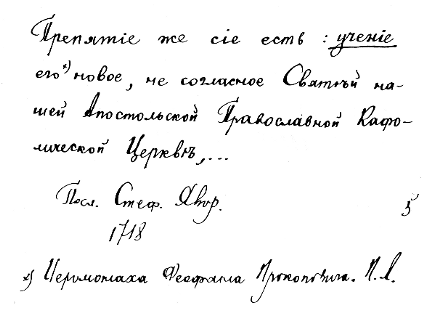 Препятіе же сіе есть : ученіе
его*) новое, не согласное Святѣй на-
шей Апостольской Православной Каѳо-
лической Церквѣ,...
Посл. Стеф. Явор.
1718
*) Іеромонаха Ѳеофана Прокоповича. П. А.